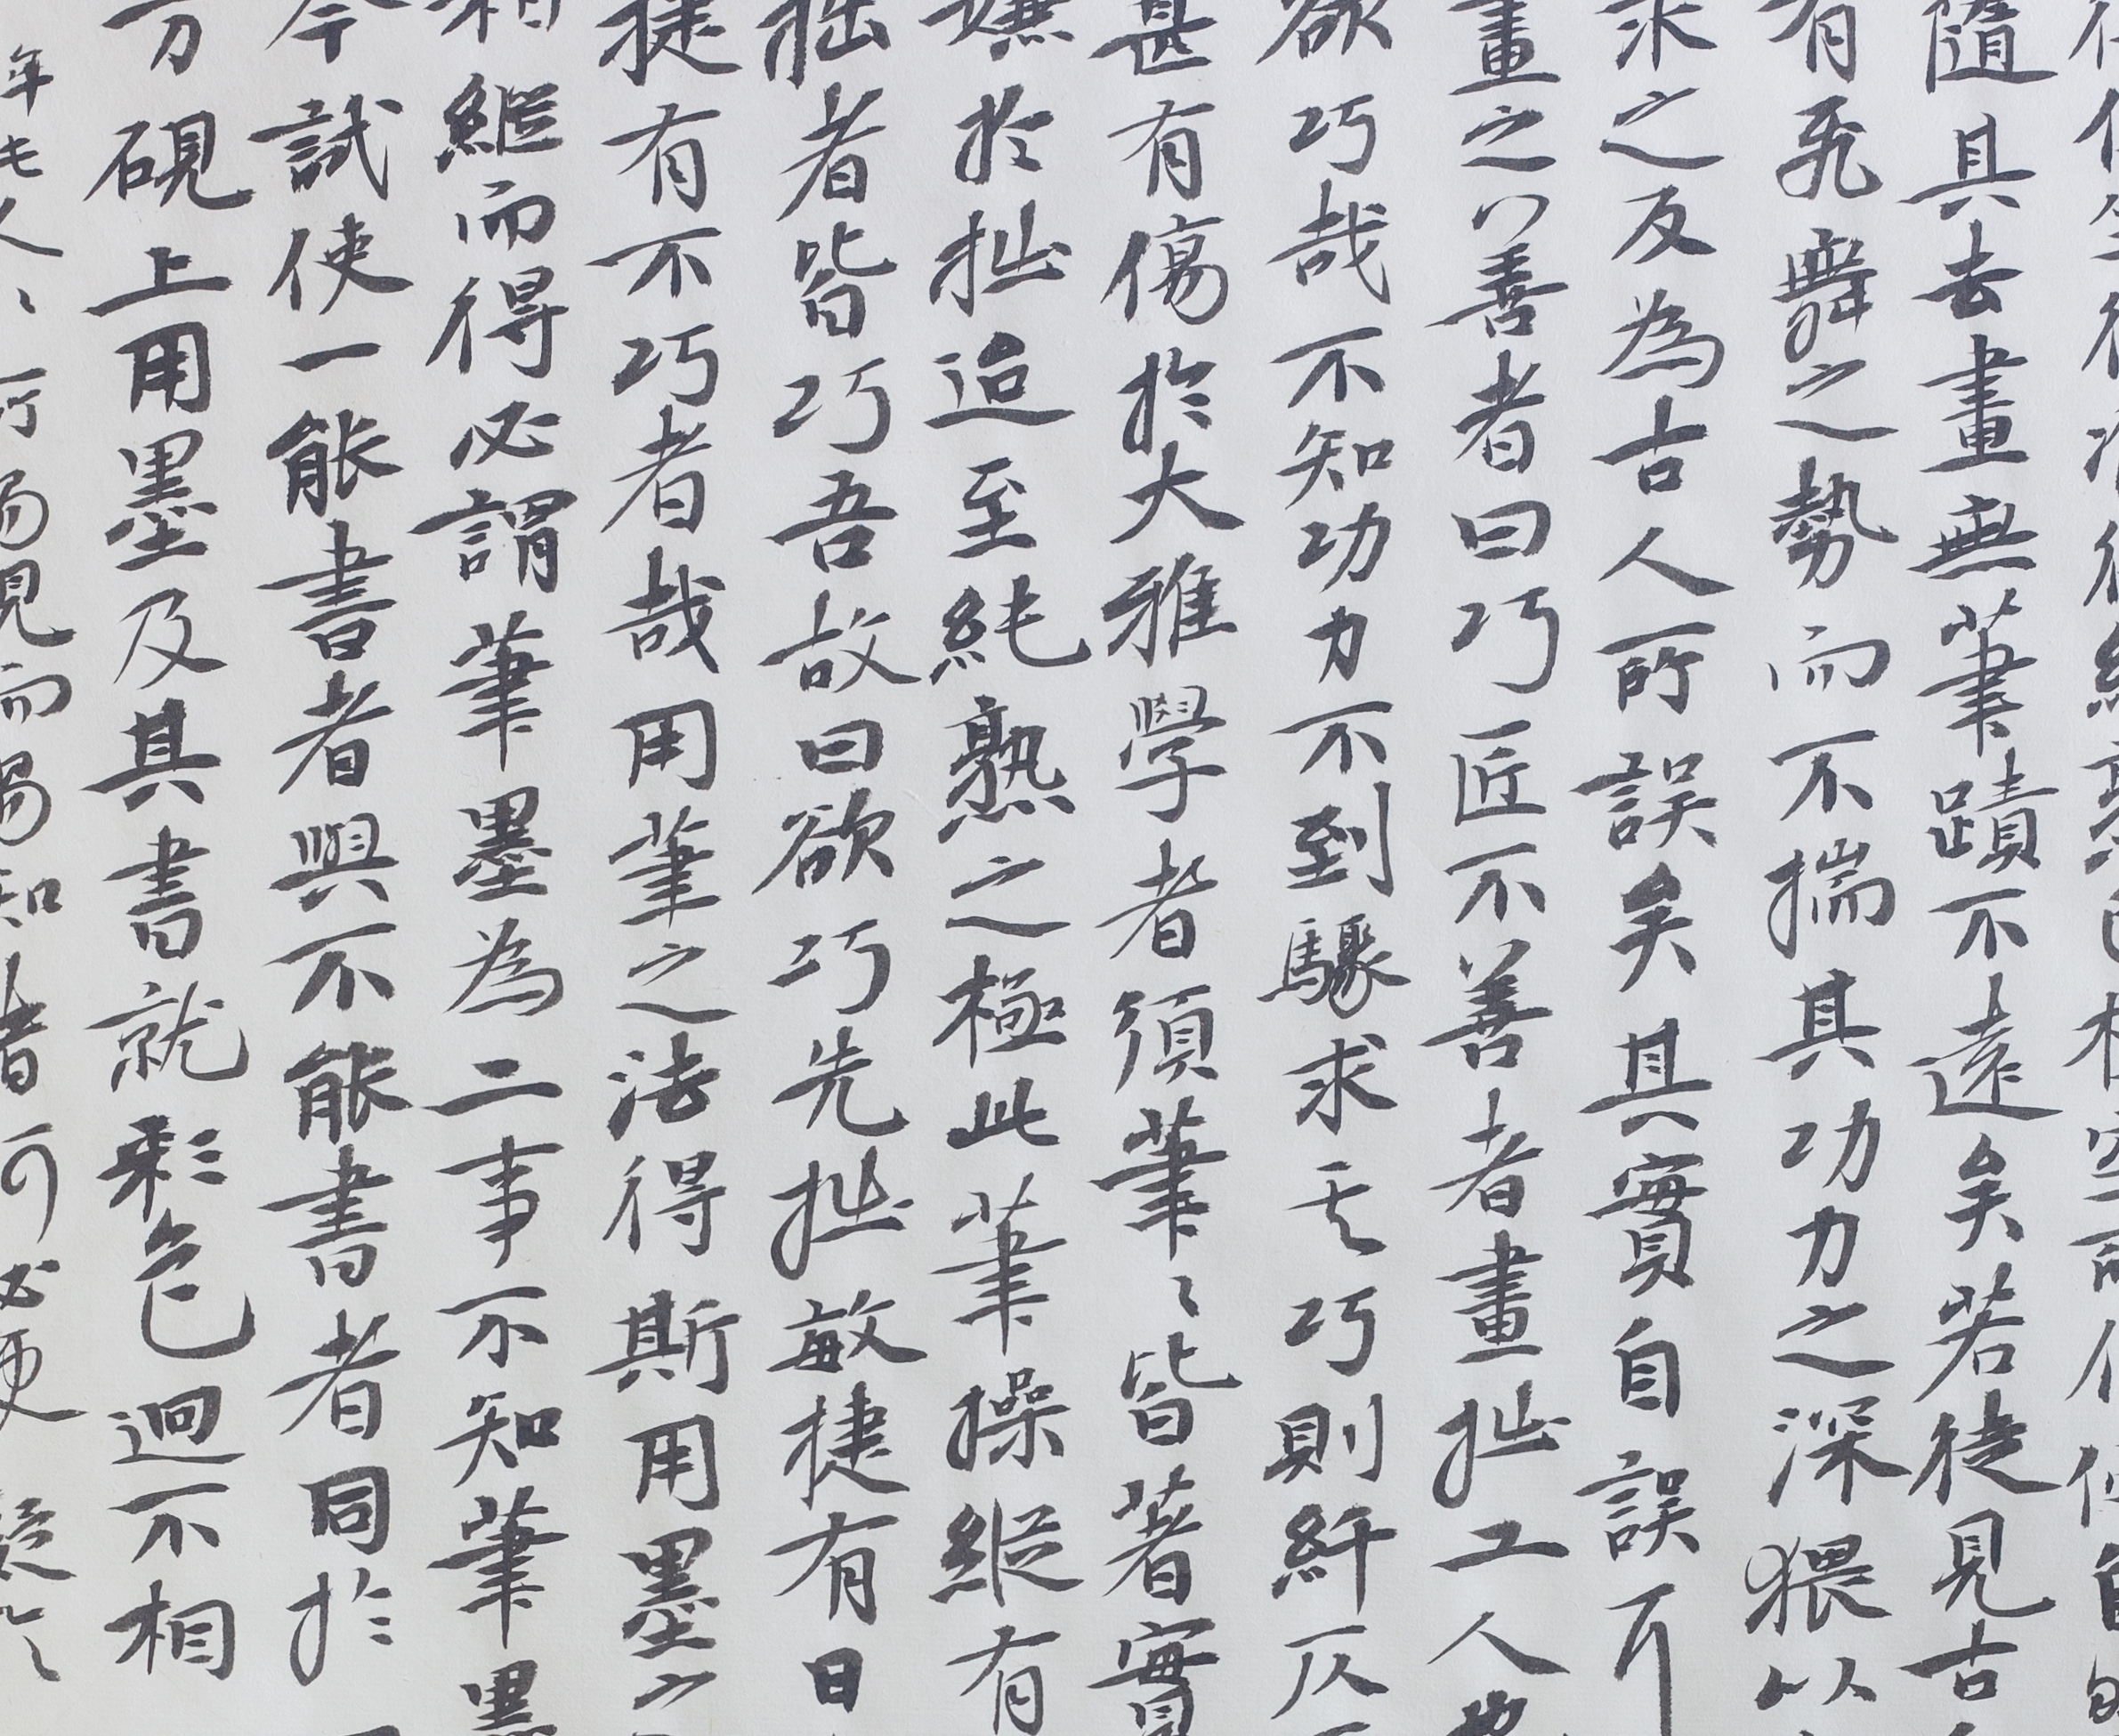 隨具去畫無筆蹟不遠矣若徒見古
有飛舞之勢而不揣其功力之深猥以
求之反為古人所誤矣其實自誤耳
畫之善者曰巧匠不善者畫拙工人
欲巧哉不知功力不到驟求其巧則纤仄
甚有傷於大雅學者須筆〻皆著實
嫌於拙迨至純熟之極此筆操縱有
拙者皆巧吾故曰欲巧先拙敏捷有日
捷有不巧者哉用筆之法得斯用墨之
相繼而得必謂筆墨為二事不知筆墨
今試使一能書者與不能書者同於
方硯上用墨及其書就彩色迥不相